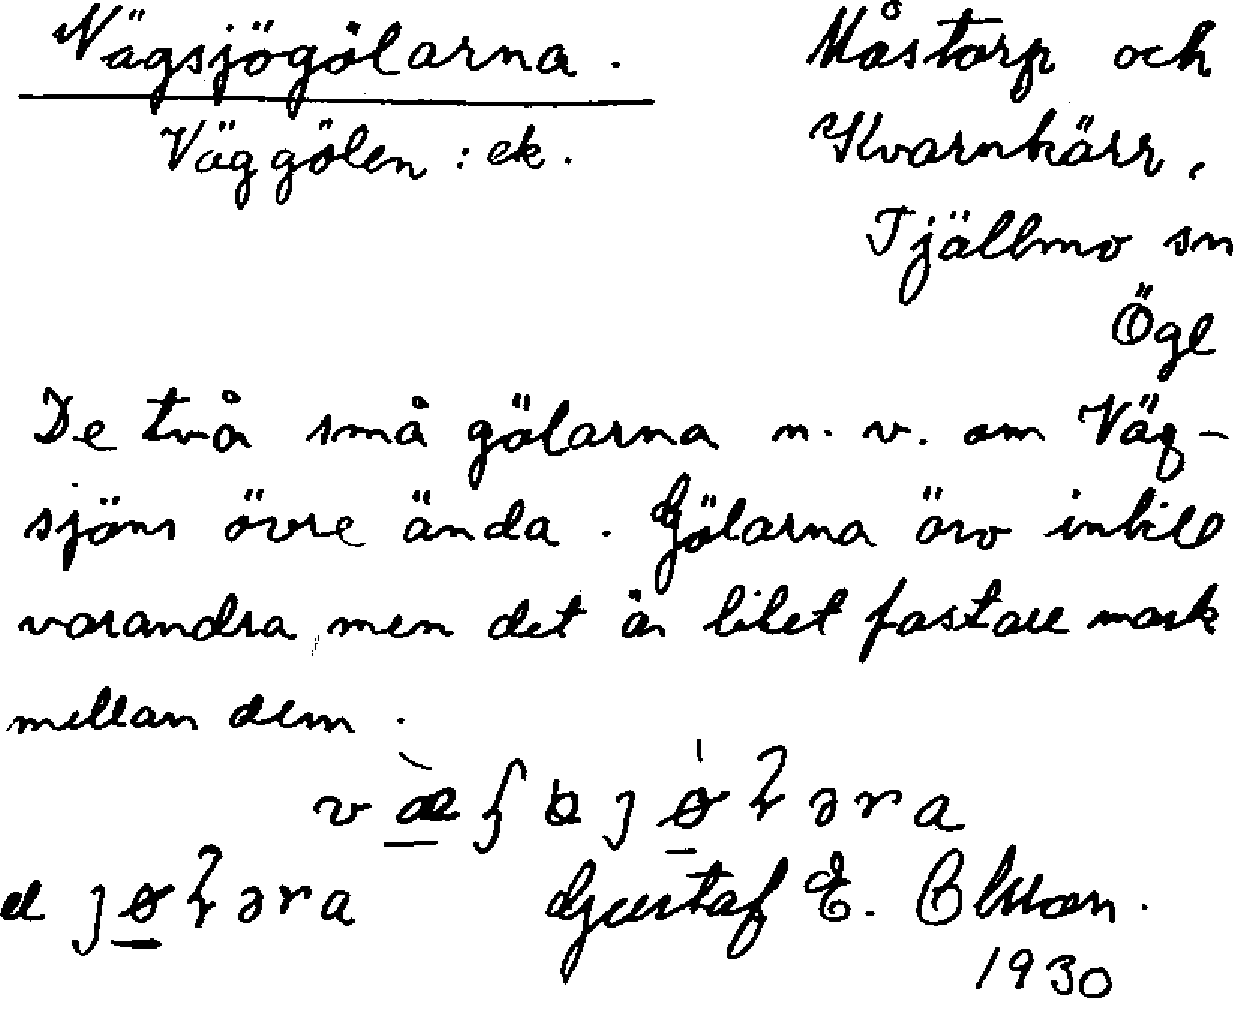 Vägsjögölarna. Måstorp och
Väggölen: ek. Kvarnkärr,
Tjällmo sn
Ögl
De två små gölarna n. v. om Väg-
sjöns övre ända. Gölarna äro intill
varandra, men det är litet fastare mark
mellan dem.
Gustaf E. Olsson.
1930